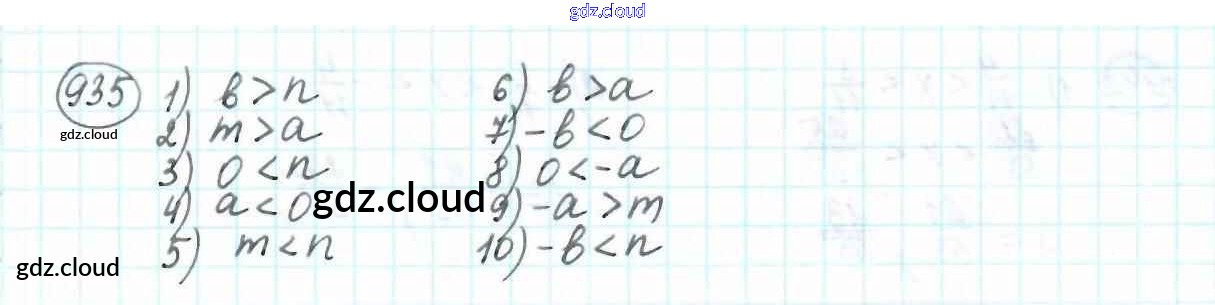 gdz.cloud
935 1) в > n 6) в > a
gdz.cloud 2) m > a 7) -в < 0
3) 0 < n 8) 0 < -a
4) a < 0 gdz.cloud 9) -a > m
5) m < n 10) -в < n
gdz.cloud